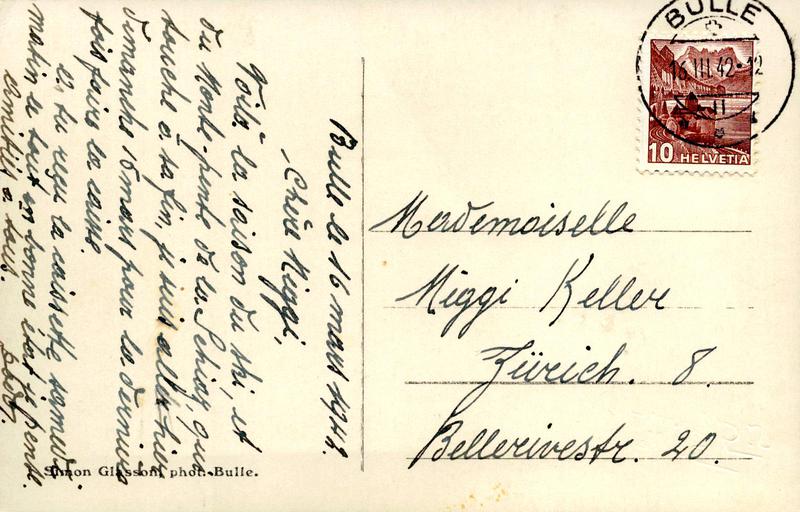 Bulle le 16 mars 1942.
Chère Miggi,
Voilà la saison du ski, et
du Monte-pente de la Schiaz, qui
touche à sa fin, je suis allée hier
dimanche 15 mars pour la dernière
fois faire la
as tu reçu la caissette samedi
matin le tout en bonne état je pense.
amitiés à tous.
Simon Glasson, phot. Bulle.
BULLE
16.III.42-12
10 HELVETIA
Mademoiselle
Miggi Keller
Zürich. 8.
Bellerivestr. 20.